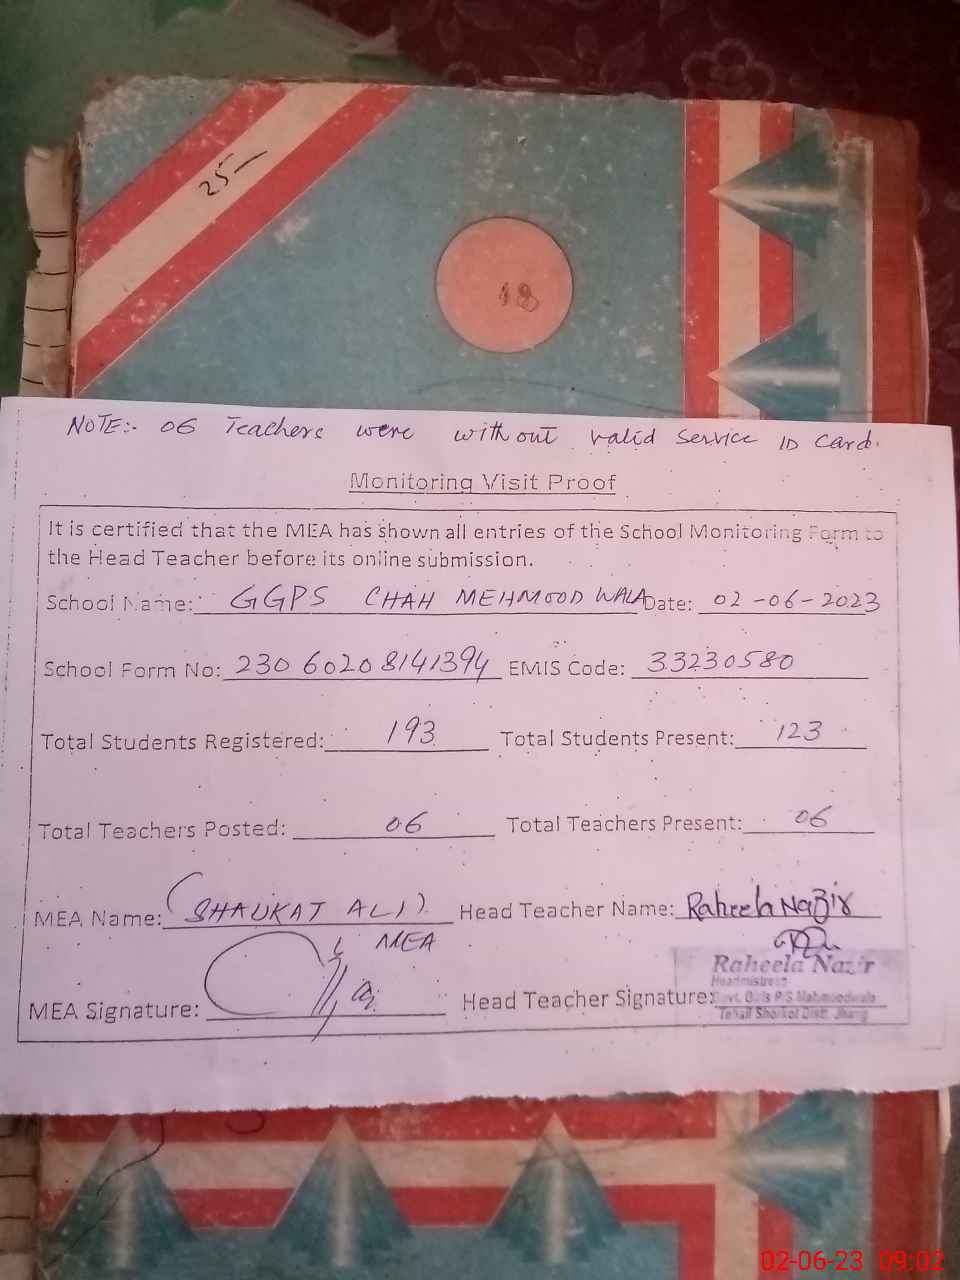 25
18
NOTE:- 06 Teachers were without valid service ID card.
Monitoring Visit Proof
It is certified that the MEA has shown all entries of the School Monitoring Form to
the Head Teacher before its online submission.
School Name: GGPS CHAH MEHMOOD WALA Date: 02-06-2023
School Form No: 23060208141394 EMIS Code: 33230580
Total Students Registered: 193 Total Students Present: 123
Total Teachers Posted: 06 Total Teachers Present: 06
MEA Name: (SHAUKAT ALI) Head Teacher Name: Raheela Nazir
MEA
Raheela Nazir
Headmistress
MEA Signature: Head Teacher Signature: Govt. Girls P/S Mahmoodwala
Tehsil Shorkot Distt. Jhang
02-06-23 09:02